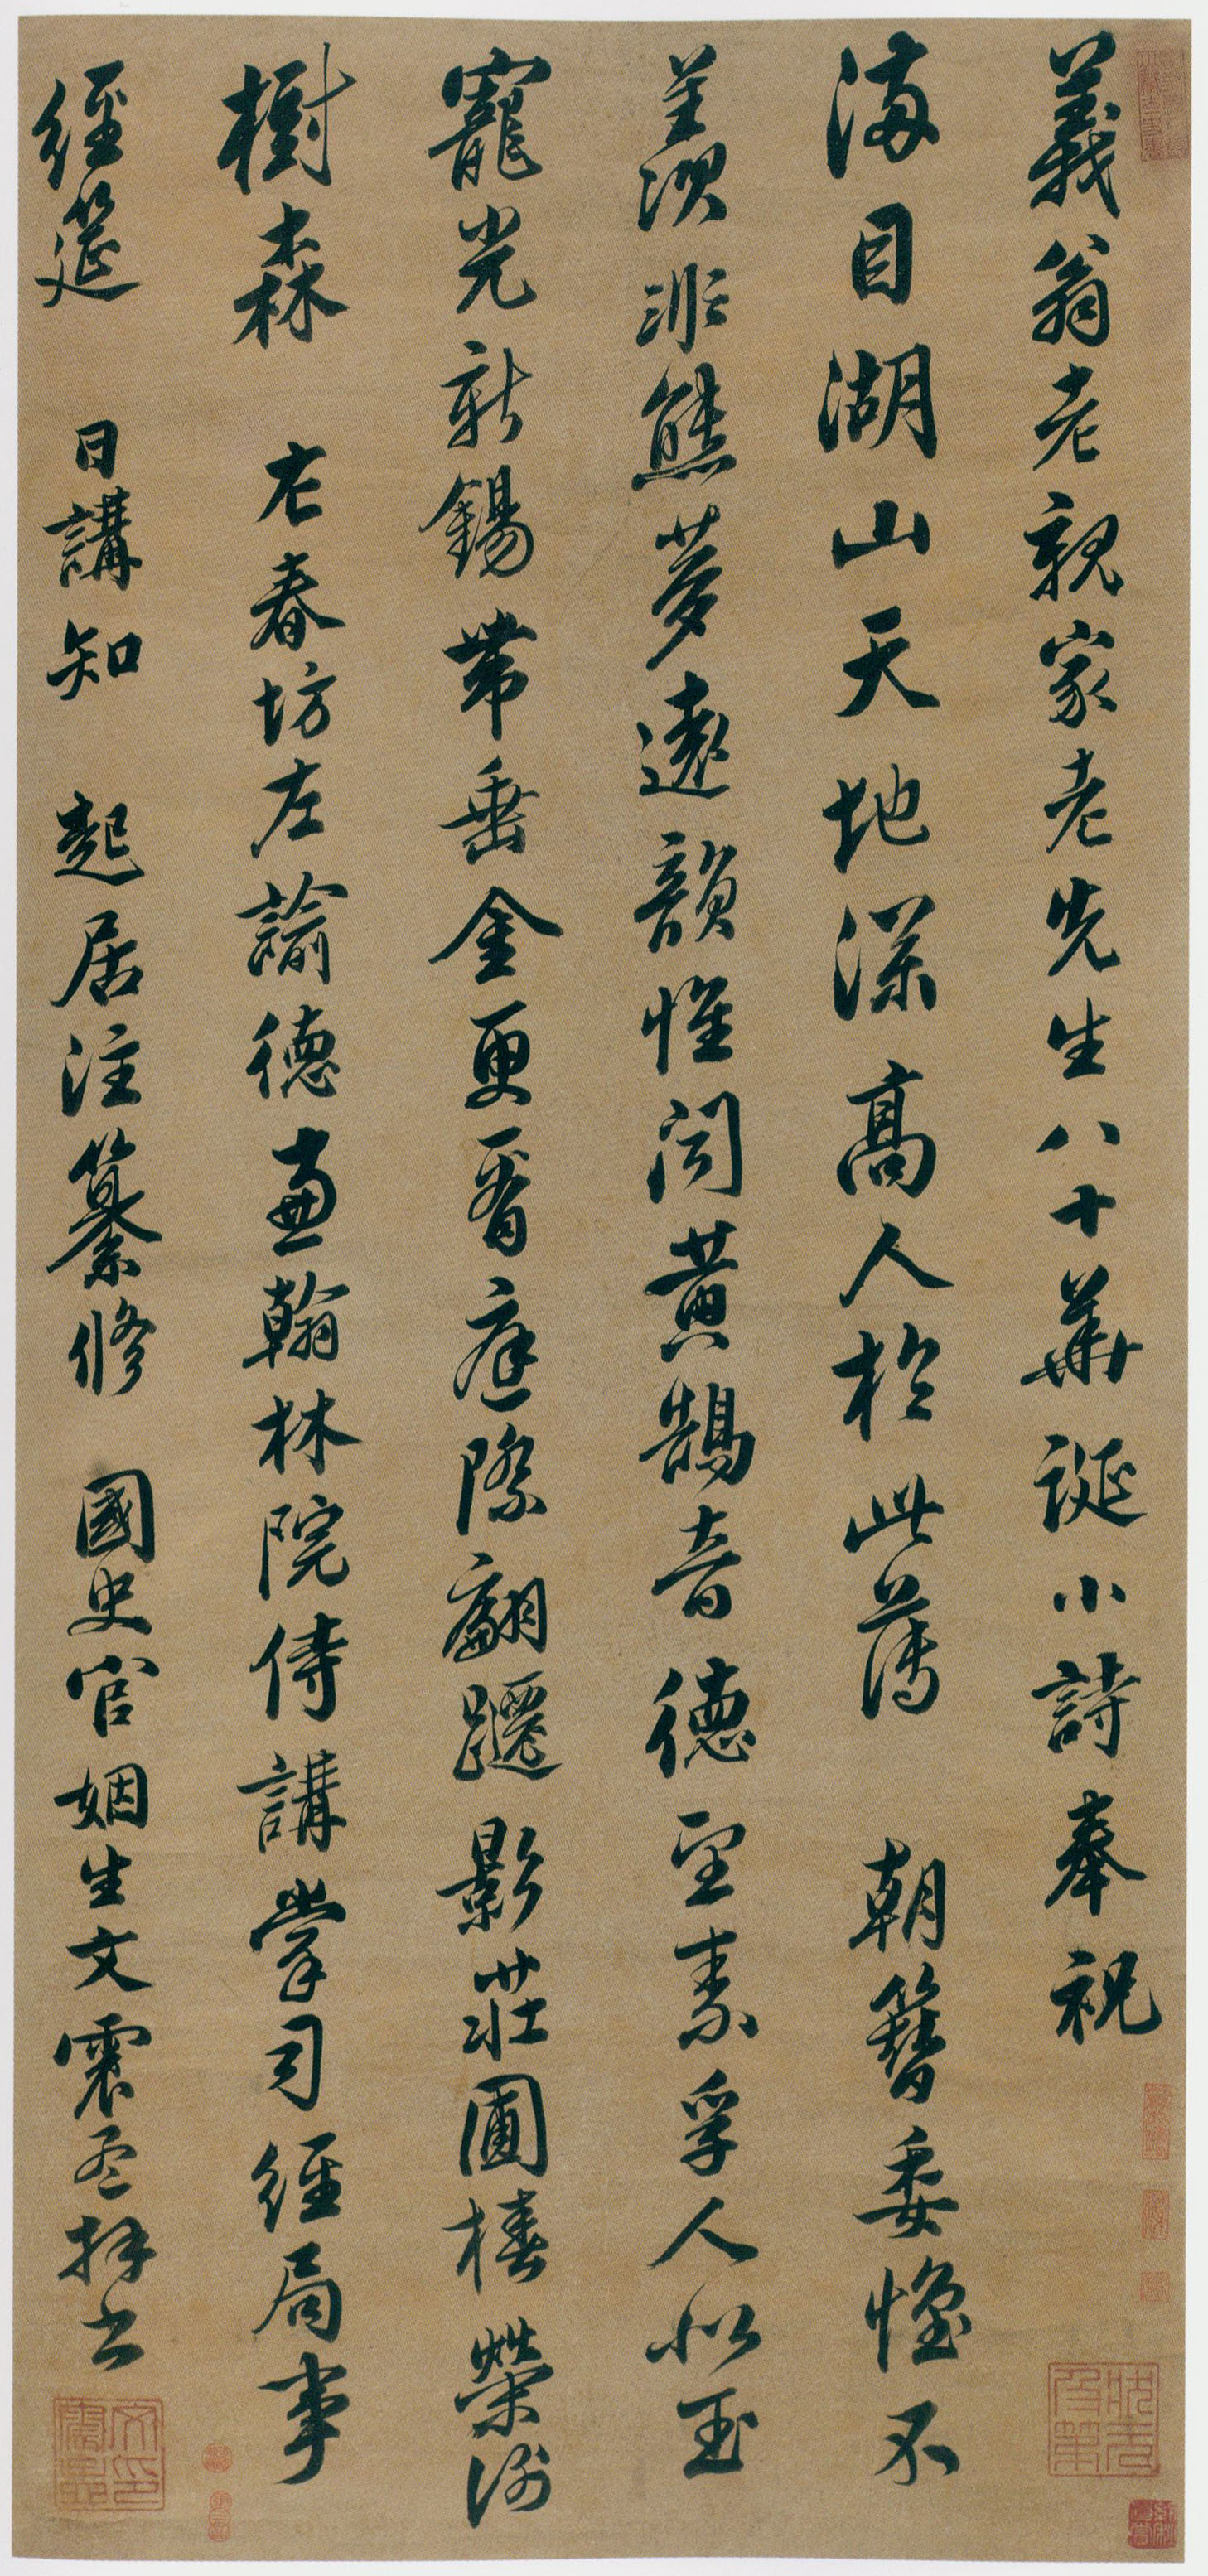 義翁老親家老先生八十華誕小詩奉祝
滿目湖山天地深高人於此薄朝簪委懷不
羨濮非熊夢遠韻惟聞黃鵠音德望素孚人似玉
寵光新錫帶垂金更看庭際翩躚影莊圃椿榮謝
樹森 右春坊左諭德兼翰林院侍講掌司經局事
經筵 日講知 起居注纂修 國史官姻生文震孟拜書